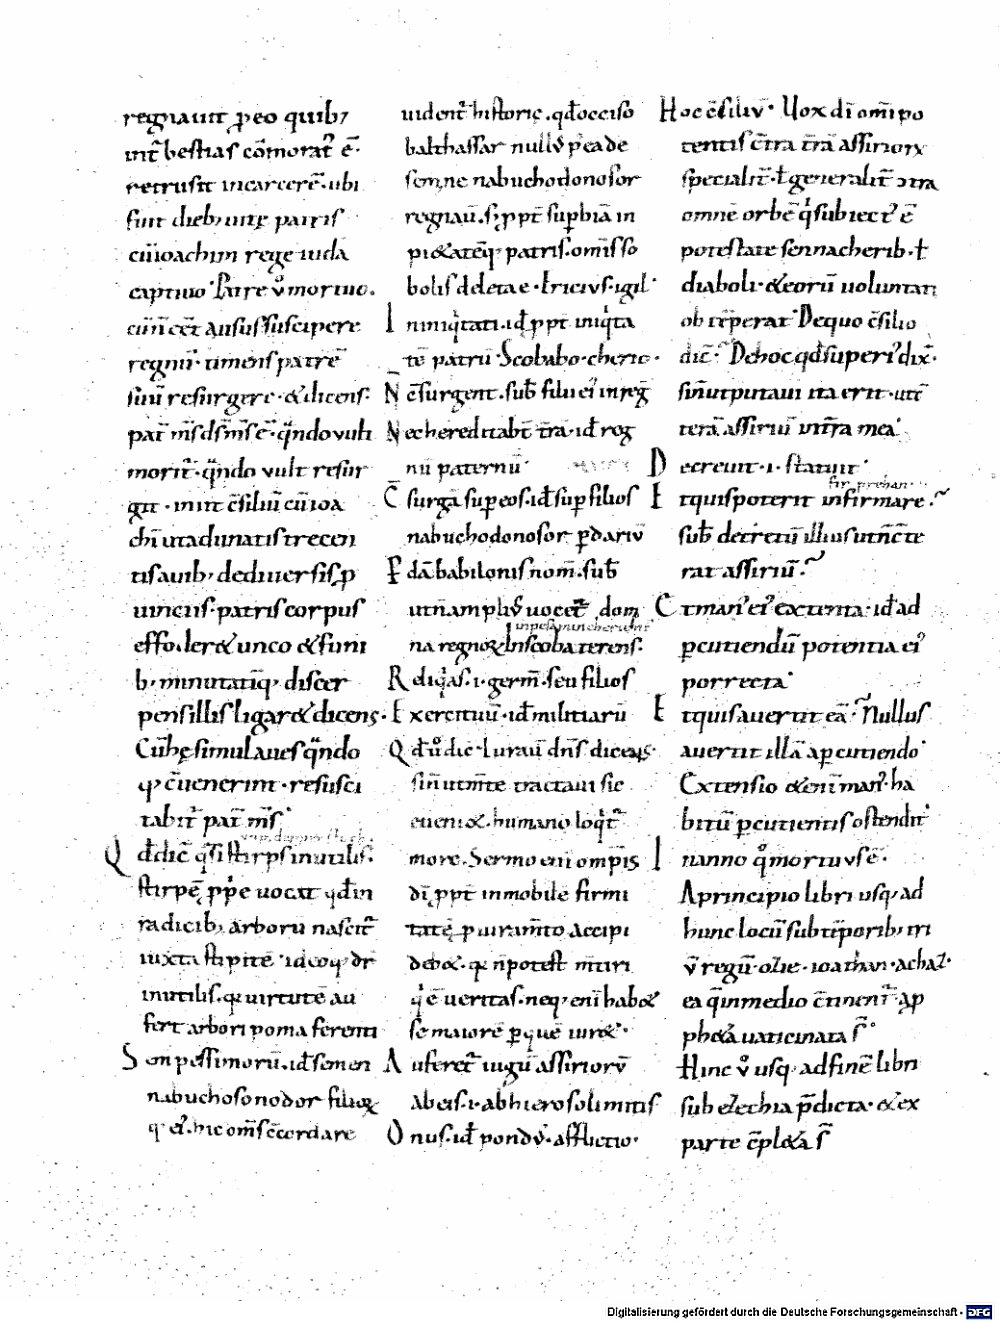 regnauit ꝑ eo quib;
int̄ bestias cōmorat᷑ ē·
retrusit incarcerē·ubi
sunt dieb; uitę patris
cū ioachim rege iuda
captiuo· Patre v̊ mortuo·
ausus suscipere
regnū· timens patrē
suū resurgere·&dicens·
pat̄ m̄s ds̄ m̄s ē· q̄ndo vult
morit᷑· q̄ndo vult resur
git· init c̄siliū cū ioa
chī ut adunatis trecen
tis auib; ꝑ
uinciis· patris corpus
effoder& unco & funi
b; minutatīq; discer
pens illis ligar& dicens·
Cū hę simul aues q̄ndo
c̄uenerint· resusci
tabit᷑ pat̄ m̄s·
Qd̄ dic̄ q̄si stirps inutilis·
stirpē ꝓp̄e uocat qd̄ in
radicib; arborū nascit᷑
iuxta stipitē· ideoq; dr̄
inutilis· uirtutē au
fert arbori poma ferenti
Sen pessimorū· id̄ semen
nabuchosonodor filiorꝝ
q; ei᷒· hic om̄s c̄cordare
uident᷑ historię· qd̄ occiso
balthassar nullū p̄ea de
semine nabuchodonosor
regnau̅· s; ꝓpt̄ suꝑbiā in
pi&atēq; patris· om̄is so
bolis d̄leta e·
In iniq̄tati· id̄ ꝓpt̄ iniq̄ta
tē patrū· Scobabo·
N c̄surgent· sub̄ filii ei᷒ in reg̅
Nec hereditabt̄ t̄ra· id̄ reg
nū paternū·
C̄surgā suꝑ eos· id̄ suꝑ filios
nabuchodonosor ꝑ dariū
Pdā babilonis nom̄· sub̄
ut n̄ ampliꝰ uocet᷑ dom
na regnorꝝ· In scoba terens·
Reliq̄as· i· germ̄· seu filios
Exercituū· id̄ militiarū
Qd̄ v̊ dic̄· Iurau̅ dn̄s dicens·
si n̄ ut m̄te tractaui sic
eueni&· humano loq̄t᷑
more. Sermo eni omp̄is
di ꝓpt̄ inmobilē firmi
tatē p iuram̄to accipi
deb&· n̄ potest m̄tiri
q̄ ē ueritas· neq; enī hab&
se maiorē ꝑ quē iur&·
Auferet᷑ iugū assiriorū
ab eis· i· ab hierosolimitis
Onus· id̄ pondꝰ· afflictio·
Hoc c̄siliū· Uox dī om̄ipo
tentis c̄tra t̄rā assiriorꝝ
specialit̄· ł generalit̄ ↄtra
omnē orbē q̄ subiect᷒ ē
potestate sennacherib· ł
diaboli· & eorū uoluntati
obtēperat· De quo c̄silio
dic̄· De hoc qd̄ superi᷒ dix̄·
si n̄ ut putaui ita erit· ut c̄
terā assiriū in t̄ra mea·
Decreuit· i· statuit·
Et quis poterit infirmare·
sub̄ decretū illius ut n̄ c̄te
rat assiriū·
Et man᷒ ei᷒ extenta· id̄ ad
ꝑcutiendū potentia ei᷒
porrecta·
Et quis auertit eā· Nullus
auertit illā a ꝑcutiendo·
Extensio & enī man᷒· ha
bitū ꝑcutientis ostendit·
In anno q̊ mortuus ē·
A principio libri usq; ad
hunc locū sub tēporib; tri
v̄ regū· ozie· ioathan· achaz·
ea q̄ in medio c̄tinent᷑ a ꝓ
ph&a uaticinata s̄·
Hinc v̊ usq; ad finē libri
sub ezechia p̄dicta· & ex
parte c̄pl&a s̄
Digitalisierung gefördert durch die Deutsche Forschungsgemeinschaft - DFG